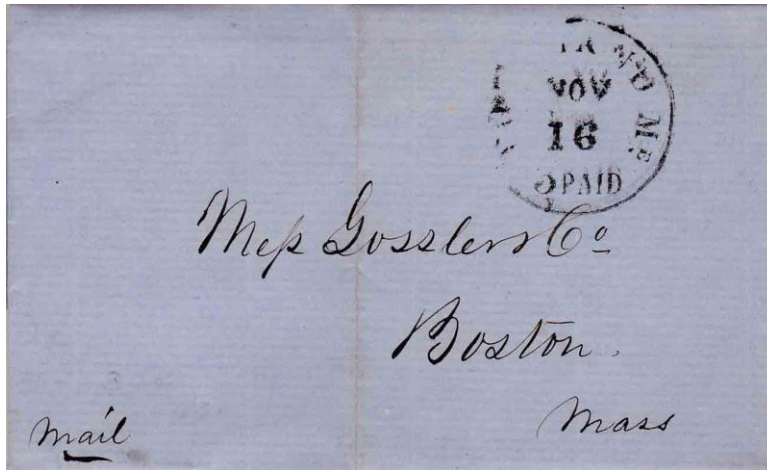 NOV
16
3 PAID
Mess Gossler & Co
Boston.
Mass
Mail